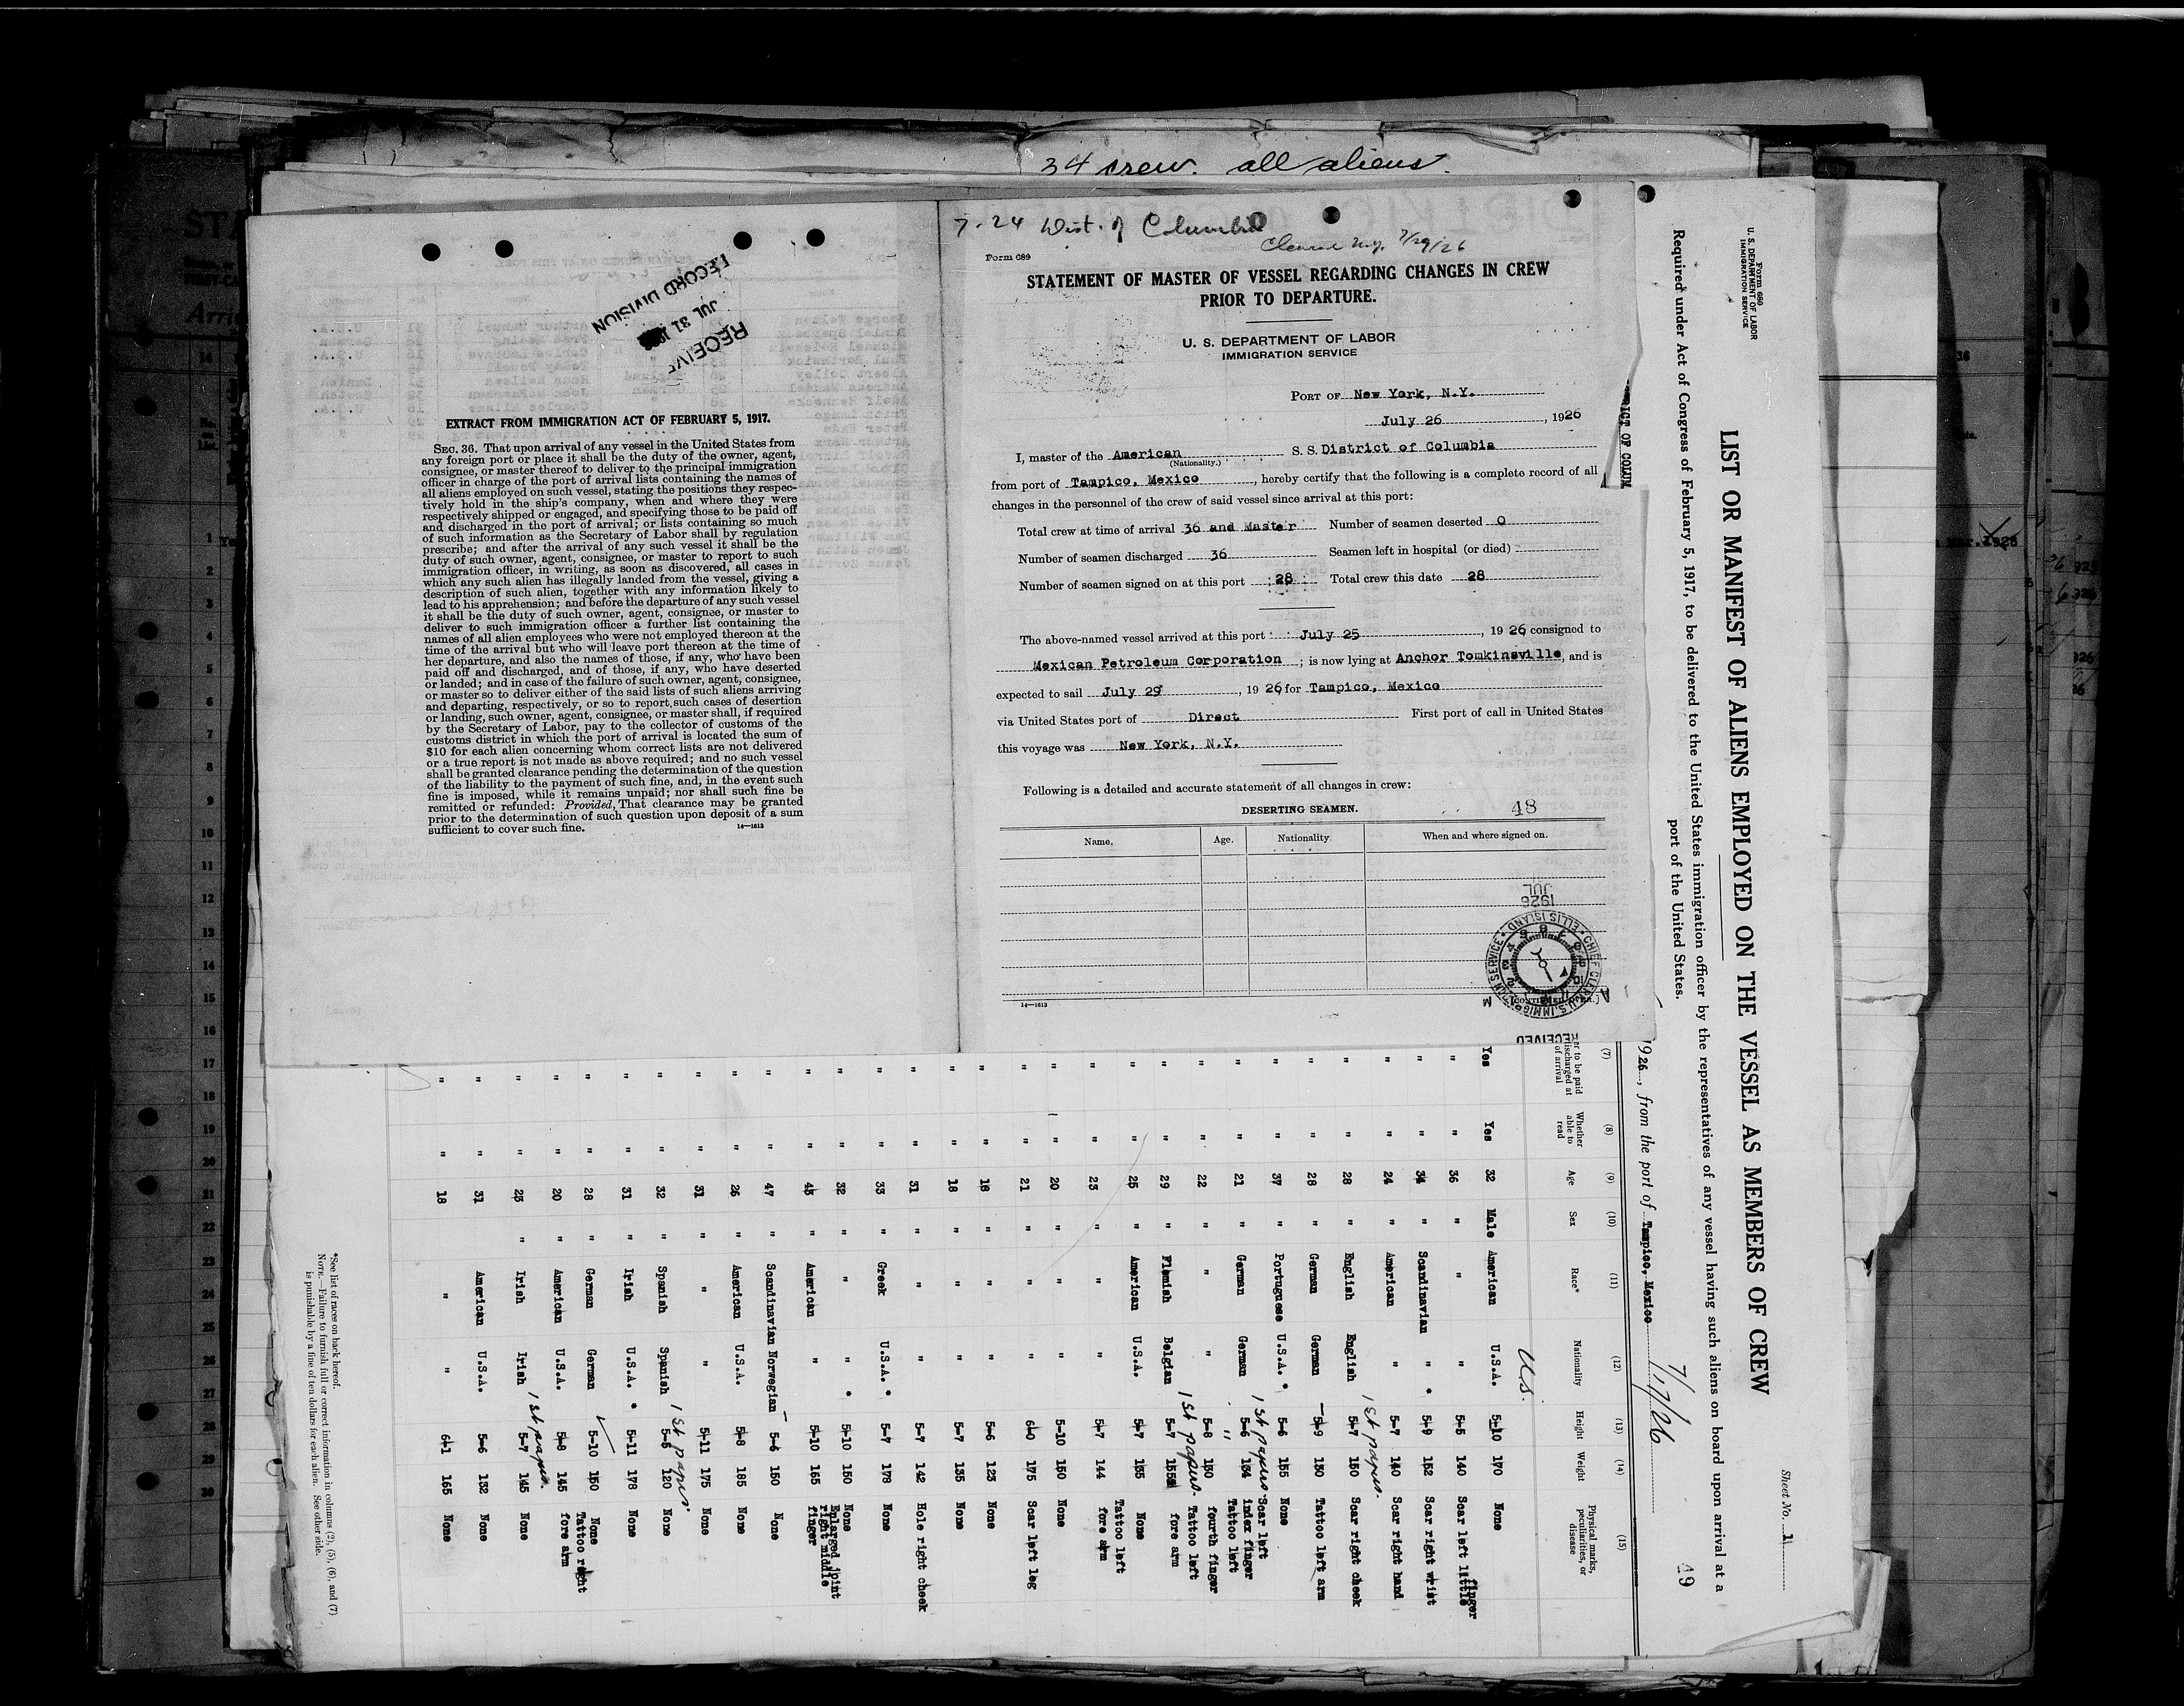 34 crew. all aliens.
7-24 Dist. of Columbia
Cleared N.Y. 7/29/26
Form 689
STATEMENT OF MASTER OF VESSEL REGARDING CHANGES IN CREW
PRIOR TO DEPARTURE.
U. S. DEPARTMENT OF LABOR
IMMIGRATION SERVICE
PORT OF New York, N.Y.
July 26, 1926
I, master of the American S. S. District of Columbia
(Nationality.)
from port of Tampico, Mexico, hereby certify that the following is a complete record of all
changes in the personnel of the crew of said vessel since arrival at this port:
Total crew at time of arrival 36 and Master Number of seamen deserted 0
Number of seamen discharged 36 Seamen left in hospital (or died)
Number of seamen signed on at this port 28 Total crew this date 28
The above-named vessel arrived at this port July 25, 1926 consigned to
Mexican Petroleum Corporation; is now lying at Anchor Tomkinsville, and is
expected to sail July 29, 1926 for Tampico, Mexico
via United States port of Direct First port of call in United States
this voyage was New York, N.Y.
Following is a detailed and accurate statement of all changes in crew:
DESERTING SEAMEN.
48
Name. Age. Nationality. When and where signed on.
14—1613
JUL
1926
CHIEF CLERK U.S. IMMIGRATION SERVICE • ELLIS ISLAND •
RECEIVED
RECORD DIVISION
JUL 31
RECEIV
EXTRACT FROM IMMIGRATION ACT OF FEBRUARY 5, 1917.
SEC. 36. That upon arrival of any vessel in the United States from
any foreign port or place it shall be the duty of the owner, agent,
consignee, or master thereof to deliver to the principal immigration
officer in charge of the port of arrival lists containing the names of
all aliens employed on such vessel, stating the positions they respec-
tively hold in the ship's company, when and where they were
respectively shipped or engaged, and specifying those to be paid off
and discharged in the port of arrival; or lists containing so much
of such information as the Secretary of Labor shall by regulation
prescribe; and after the arrival of any such vessel it shall be the
duty of such owner, agent, consignee, or master to report to such
immigration officer, in writing, as soon as discovered, all cases in
which any such alien has illegally landed from the vessel, giving a
description of such alien, together with any information likely to
lead to his apprehension; and before the departure of any such vessel
it shall be the duty of such owner, agent, consignee, or master to
deliver to such immigration officer a further list containing the
names of all alien employees who were not employed thereon at the
time of the arrival but who will leave port thereon at the time of
her departure, and also the names of those, if any, who have been
paid off and discharged, and of those, if any, who have deserted
or landed; and in case of the failure of such owner, agent, consignee,
or master so to deliver either of the said lists of such aliens arriving
and departing, respectively, or so to report such cases of desertion
or landing, such owner, agent, consignee, or master shall, if required
by the Secretary of Labor, pay to the collector of customs of the
customs district in which the port of arrival is located the sum of
$10 for each alien concerning whom correct lists are not delivered
or a true report is not made as above required; and no such vessel
shall be granted clearance pending the determination of the question
of the liability to the payment of such fine, and, in the event such
fine is imposed, while it remains unpaid; nor shall such fine be
remitted or refunded: Provided, That clearance may be granted
prior to the determination of such question upon deposit of a sum
sufficient to cover such fine.
14—1613
Form 680
U. S. DEPARTMENT OF LABOR
IMMIGRATION SERVICE
Sheet No. 1
LIST OR MANIFEST OF ALIENS EMPLOYED ON THE VESSEL AS MEMBERS OF CREW
Required under Act of Congress of February 5, 1917, to be delivered to the United States immigration officer by the representatives of any vessel having such aliens on board upon arrival at a
port of the United States.
49
1926, from the port of Tampico, Mexico 7/17/26
(7) (8) (9) (10) (11) (12) (13) (14) (15)
Whether able to read Age Sex Race* Nationality Height Weight Physical marks, peculiarities, or disease
U.S.
Yes Yes 32 Male American U.S.A. 5-10 170 None
" " 36 " " " 5-5 140 Scar left little finger
" " 34 " Scandinavian " * 5-9 152 Scar right wrist
" " 24 " American " 5-7 140 Scar right hand
" " 28 " English English 1st papers. 5-7 150 Scar right cheek
" " 28 " German German 5-9 130 Tattoo left arm
" " 37 " Portuguese U.S.A. * 5-6 155 None
" " 21 " German German 1st papers 5-6 134 Scar left index finger
" " 22 " " " " 5-8 130 Tattoo left fourth finger
" " 29 " Flemish Belgian 1st papers. 5-7 155 Tattoo left fore arm
" " 25 " American U.S.A. 5-7 135 None
" " 23 " " " 5-7 144 Tattoo left fore arm
" " 20 " " " 5-10 150 None
" " 21 " " " 6-0 175 Scar left leg
" " 18 " " " 5-6 123 None
" " 18 " " " 5-7 135 None
" " 31 " " " 5-7 142 Hole right cheek
" " 33 " Greek U.S.A. * 5-7 178 None
" " 32 " " " * 5-10 150 None
" " 45 " American " 5-10 165 Enlarged joint right middle finger
" " 47 " Scandinavian Norwegian 5-6 150 None
" " 26 " American U.S.A. 5-8 185 None
" " 31 " " " 5-11 175 None
" " 32 " Spanish Spanish 1st papers 5-5 120 None
" " 31 " Irish U.S.A. * 5-11 178 None
" " 28 " German German 5-10 150 None
" " 20 " American U.S.A. 5-8 145 Tattoo right fore arm
" " 25 " Irish Irish 1st papers. 5-7 145 None
" " 31 American U.S.A. 5-6 132 None
" " 18 " " 6-1 165 None
*See list of races on back hereof.
NOTE.—Failure to furnish full or correct information in columns (2), (5), (6), and (7)
is punishable by a fine of ten dollars for each alien. See other side.